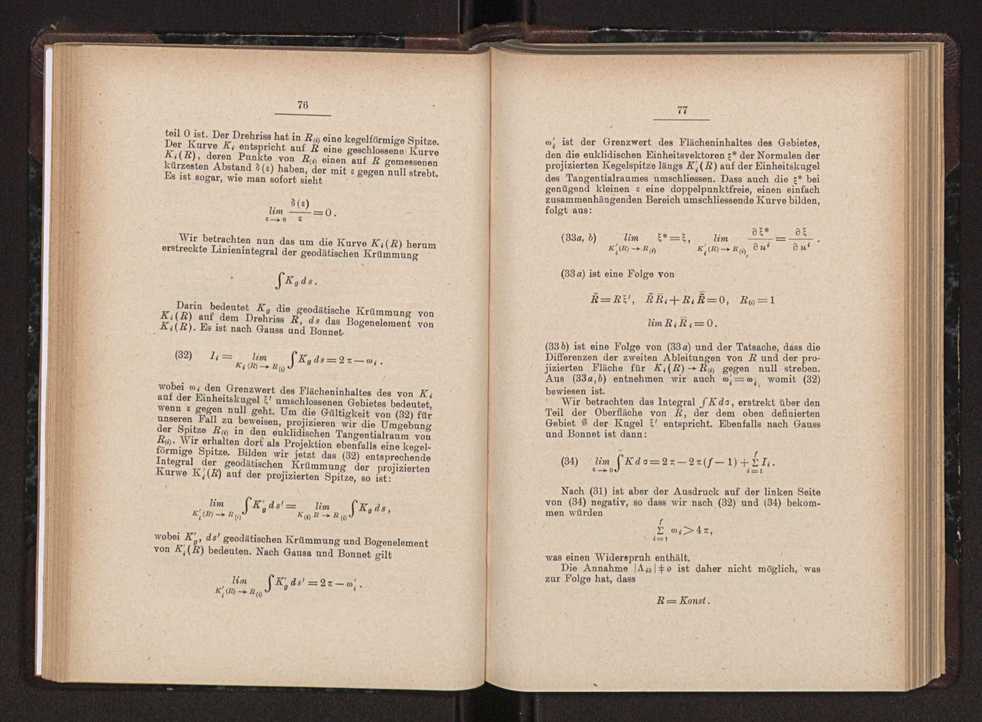 76
teil O ist. Der Drehriss hat in R(i) eine kegelförmige Spitze.
Der Kurve K_i entspricht auf R eine geschlossene Kurve
K_i(R), deren Punkte von R(i) einen auf R gemessenen
kürzesten Abstand δ(ε) haben, der mit ε gegen null strebt.
Es ist sogar, wie man sofort sieht
lim_{ε→0} δ(ε)/ε = 0.
Wir betrachten nun das um die Kurve K_i(R) herum
erstreckte Linienintegral der geodätischen Krümmung
∫K_g ds.
Darin bedeutet K_g die geodätische Krümmung von
K_i(R) auf dem Drehriss R, ds das Bogenelement von
K_i(R). Es ist nach Gauss und Bonnet
(32) I_i = lim_{K_i(R)→R(i)} ∫K_g ds = 2π — ω_i.
wobei ω_i den Grenzwert des Flächeninhaltes des von K_i
auf der Einheitskugel ξ' umschlossenen Gebietes bedeutet,
wenn ε gegen null geht. Um die Gültigkeit von (32) für
unseren Fall zu beweisen, projizieren wir die Umgebung
der Spitze R(i) in den euklidischen Tangentialraum von
R(i). Wir erhalten dort als Projektion ebenfalls eine kegel-
förmige Spitze. Bilden wir jetzt das (32) entsprechende
Integral der geodätischen Krümmung der projizierten
Kurwe K'_i(R) auf der projizierten Spitze, so ist:
lim_{K'_i(R)→R(i)} ∫K'_g ds' = lim_{K(i) R→R(i)} ∫K_g ds,
wobei K'_g, ds' geodätischen Krümmung und Bogenelement
von K'_i(R) bedeuten. Nach Gauss und Bonnet gilt
lim_{K'_i(R)→R(i)} ∫K'_g ds' = 2π — ω'_i.
77
ω'_i ist der Grenzwert des Flächeninhaltes des Gebietes,
den die euklidischen Einheitsvektoren ξ* der Normalen der
projizierten Kegelspitze längs K'_i(R) auf der Einheitskugel
des Tangentialraumes umschliessen. Dass auch die ξ* bei
genügend kleinen ε eine doppelpunktfreie, einen einfach
zusammenhängenden Bereich umschliessende Kurve bilden,
folgt aus:
(33a, b) lim_{K'_i(R)→R(i)} ξ* = ξ, lim_{K'_i(R)→R(i)} ∂ξ*/∂u^i = ∂ξ/∂u^i.
(33a) ist eine Folge von
R̄ = Rξ', R̄R̄_i + R_i R̄ = 0, R(i) = 1
lim R_i R̄_i = 0.
(33b) ist eine Folge von (33a) und der Tatsache, dass die
Differenzen der zweiten Ableitungen von R und der pro-
jizierten Fläche für K_i(R)→R(i) gegen null streben.
Aus (33a,b) entnehmen wir auch ω'_i = ω_i, womit (32)
bewiesen ist.
Wir betrachten das Integral ∫Kdσ, erstrekt über den
Teil der Oberfläche von R, der dem oben definierten
Gebiet der Kugel ξ' entspricht. Ebenfalls nach Gauss
und Bonnet ist dann:
(34) lim_{ε→0} ∫K dσ = 2π — 2π(f—1) + Σ_{i=1}^{f} I_i.
Nach (31) ist aber der Ausdruck auf der linken Seite
von (34) negativ, so dass wir nach (32) und (34) bekom-
men würden
Σ_{i=1}^{f} ω_i > 4π,
was einen Widerspruh enthält.
Die Annahme |Λ_ik| ǂ o ist daher nicht möglich, was
zur Folge hat, dass
R = Konst.